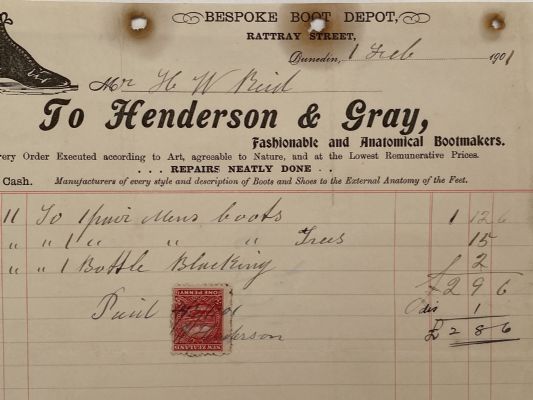 BESPOKE BOOT DEPOT,
RATTRAY STREET,
Dunedin, 1 Feb 1901
Mr H W Reid
To Henderson & Gray,
Fashionable and Anatomical Bootmakers.
very Order Executed according to Art, agreeable to Nature, and at the Lowest Remunerative Prices.
. . . REPAIRS NEATLY DONE . .
Cash. Manufacturers of every style and description of Boots and Shoes to the External Anatomy of the Feet.
11 To 1 pair Mens boots 1 12 6
" " 1 " " " Trees 15
" " 1 Bottle Blacking 2
£2 9 6
Paid
dis 1
£2 8 6
Henderson
ONE PENNY
NEW ZEALAND